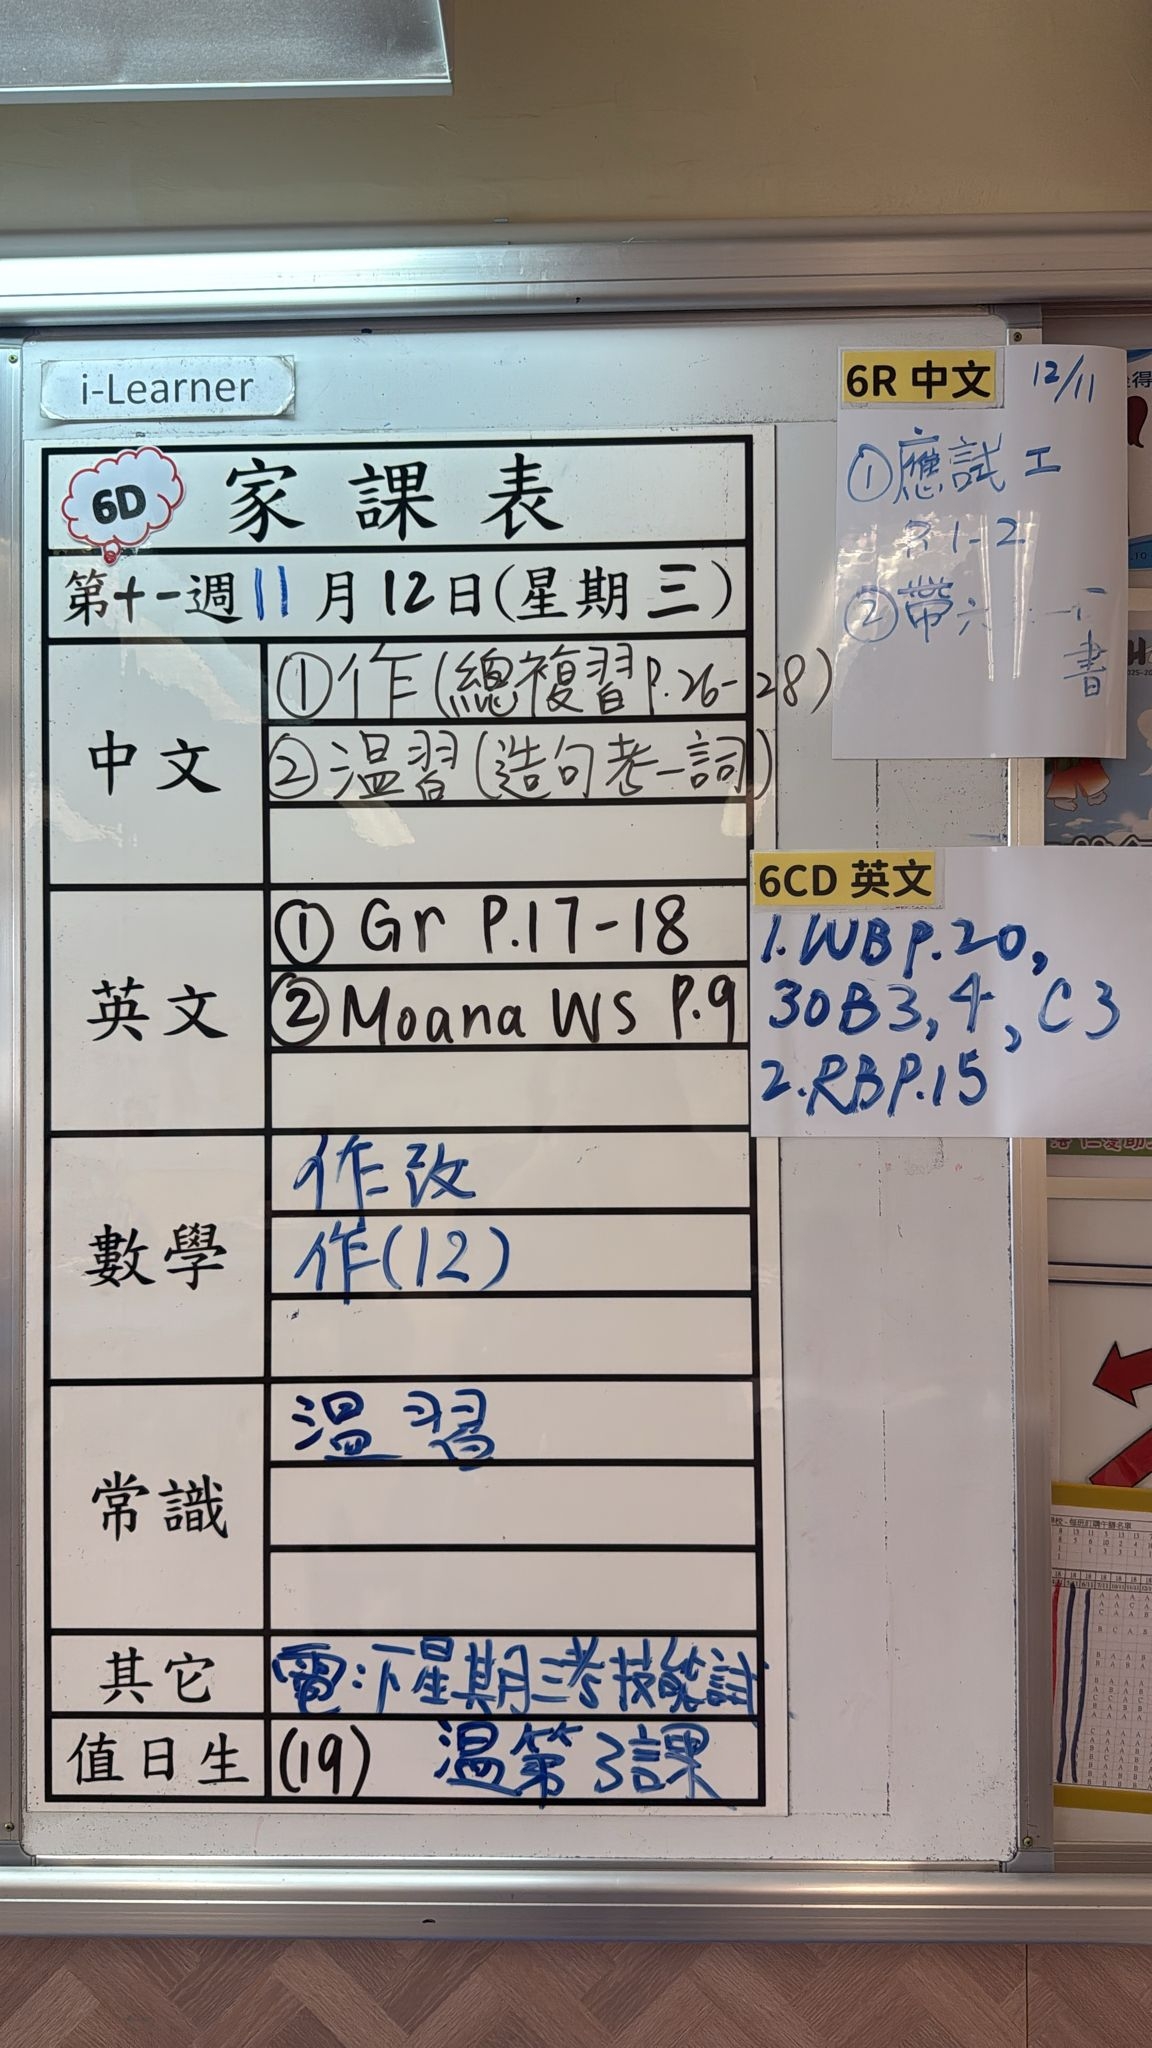 i-Learner
6D 家課表
第十一週11月12日(星期三)
中文
①作(總複習P.26-28)
②溫習(造句考一詞)
英文
① Gr P.17-18
② Moana WS P.9
數學
作改
作(12)
常識
溫習
其它
電:下星期三考技能試
值日生
(19) 溫第3課
6R 中文 12/11
①應試工
1-2
②帶六
書
6CD 英文
1.WB P.20,
30B3,4,C3
2.RB P.15